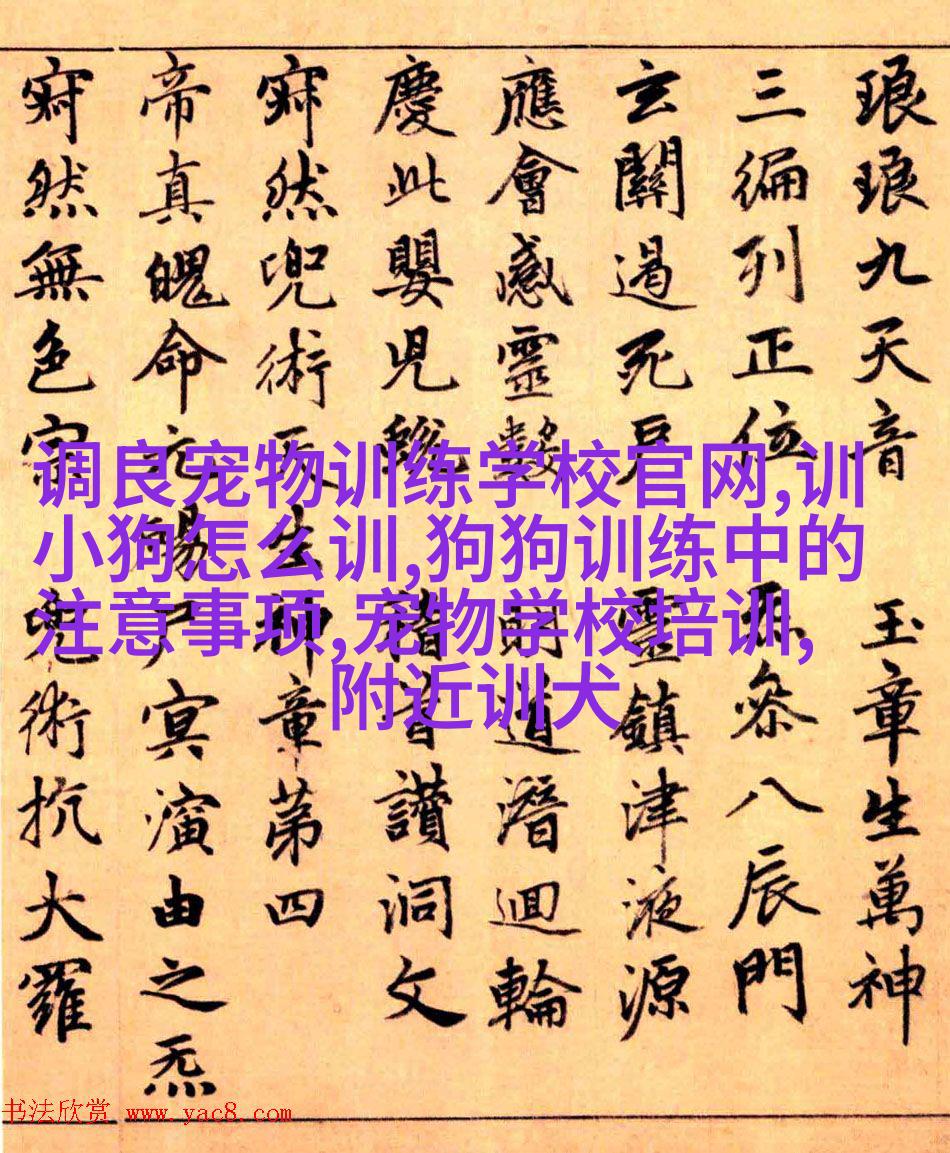 琅琅九天音 玉章生萬神
三徧列正位 叅八辰門
玄關過死戶 靈鎮津液源
應會感靈數 道潛迴輪
慶此嬰兒 稽首讚洞文
寂然兜術天生神章第四
帝真魄命元賜尸冥演由之炁
寂然無色宗兜術抗大羅
调良宠物训练学校官网,训
小狗怎么训,狗狗训练中的
注意事项,宠物学校培训,
附近训犬
书法欣赏 www.yac8.com